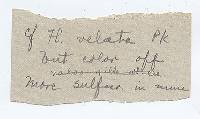 cf H. velata Pk
but color off
more sulfur in mine